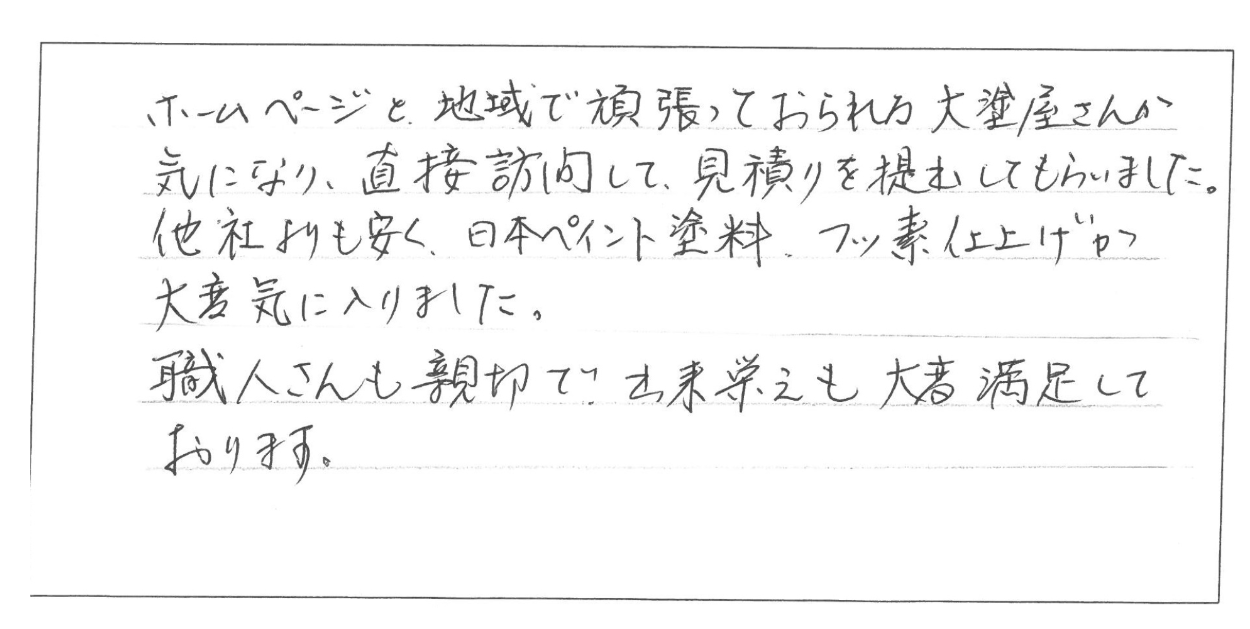 ホームページと、地域で頑張っておられる大塗屋さんが
気になり、直接訪問して、見積りを提出してもらいました。
他社よりも安く、日本ペイント塗料、フッ素仕上げが
大変気に入りました。
職人さんも親切で、出来栄えも大変満足して
おります。